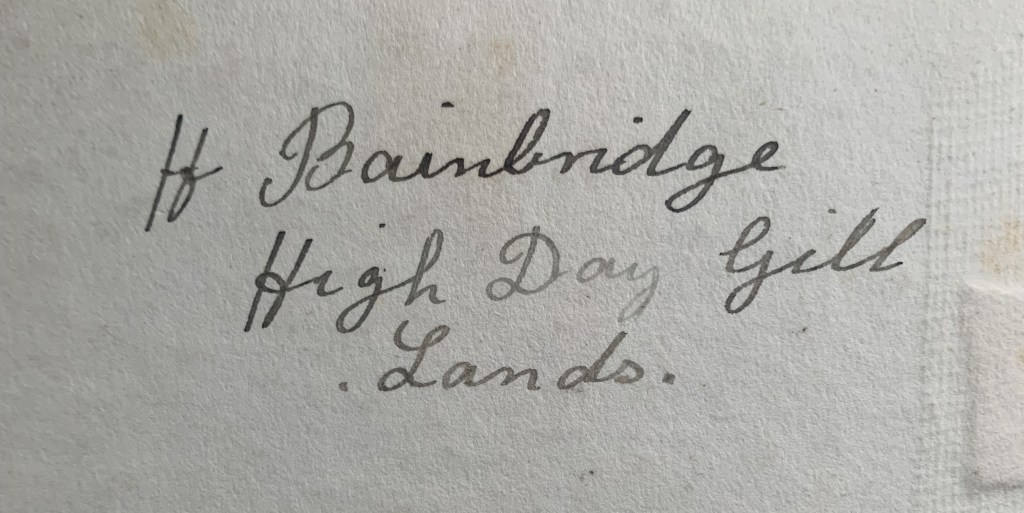 H Bainbridge
High Day Gill
. Lands.